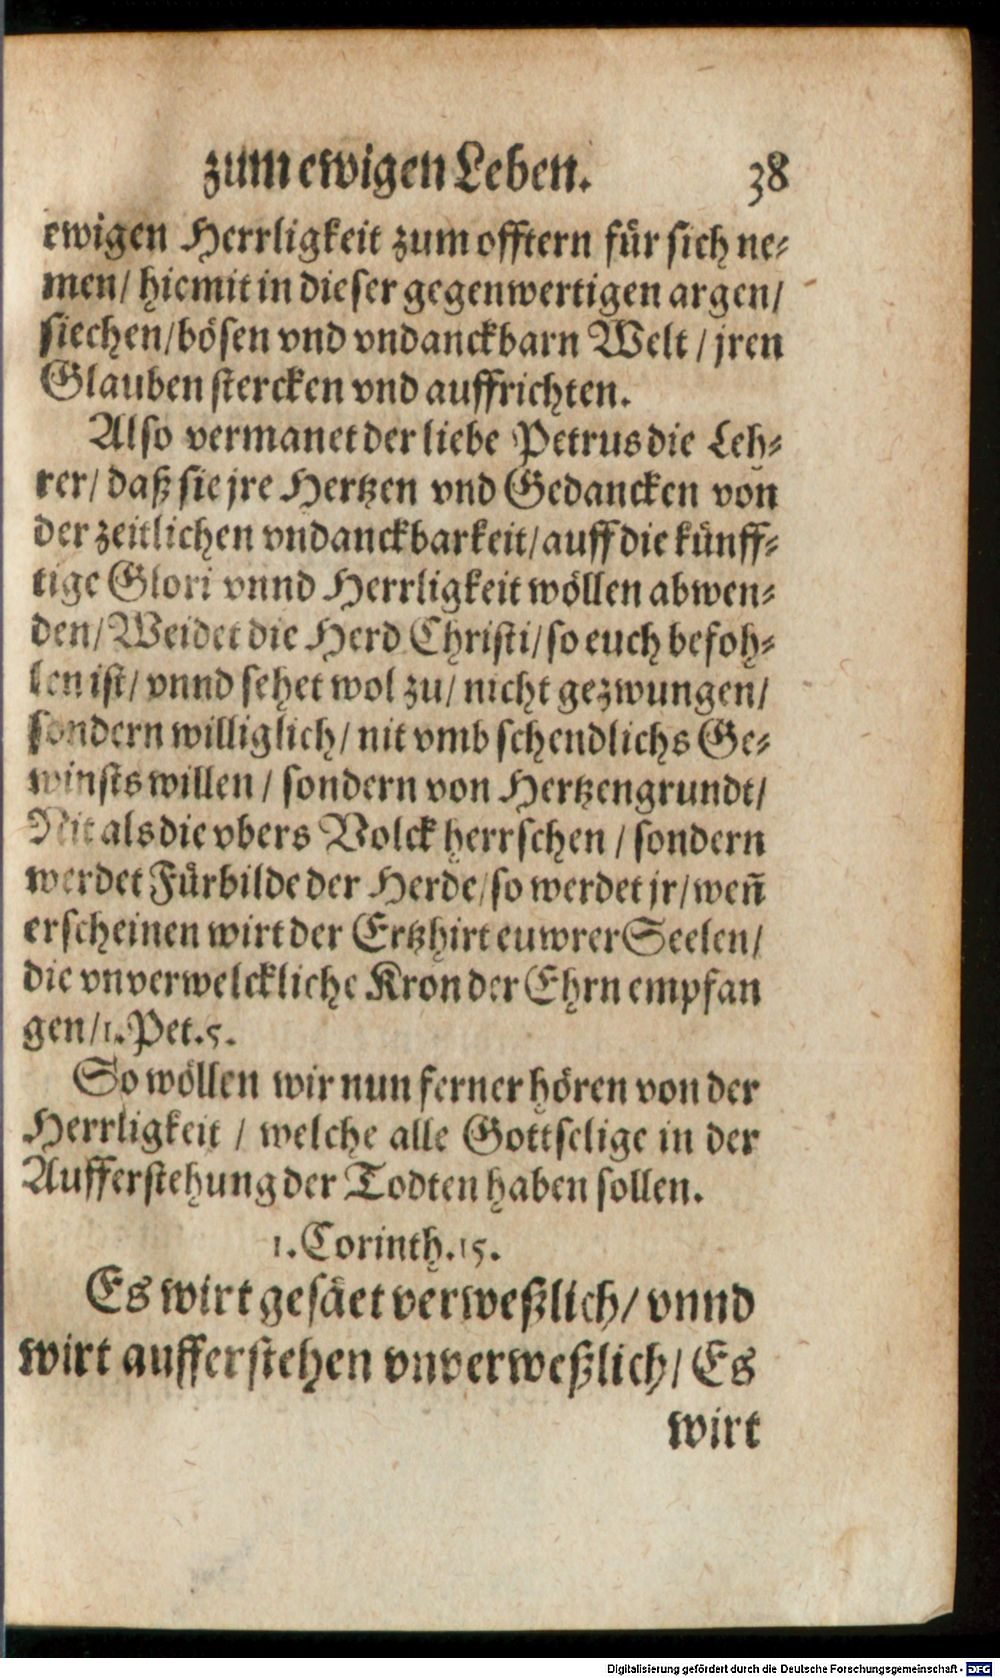 zum ewigen Leben. 38
ewigen Herrligkeit zum offtern für sich ne-
men/ hiemit in dieser gegenwertigen argen/
siechen/ bösen vnd vndanckbarn Welt / jren
Glauben stercken vnd auffrichten.
Also vermanet der liebe Petrus die Leh-
rer/ daß sie jre Hertzen vnd Gedancken von
der zeitlichen vndanckbarkeit/ auff die künff-
tige Glori vnnd Herrligkeit wöllen abwen-
den/ Weidet die Herd Christi/ so euch befoh-
len ist/ vnnd sehet wol zu/ nicht gezwungen/
sondern williglich/ nit vmb schendlichs Ge-
winsts willen / sondern von Hertzengrundt/
Nit als die vbers Volck herrschen / sondern
werdet Fürbilde der Herde/ so werdet jr/ weñ
erscheinen wirt der Ertzhirt euwrer Seelen/
die vnverwelckliche Kron der Ehrn empfan
gen/ 1. Pet. 5.
So wöllen wir nun ferner hören von der
Herrligkeit / welche alle Gottselige in der
Aufferstehung der Todten haben sollen.
1. Corinth. 15.
Es wirt gesäet verweßlich/ vnnd
wirt aufferstehen vnverweßlich/ Es
wirt
Digitalisierung gefördert durch die Deutsche Forschungsgemeinschaft - DFG